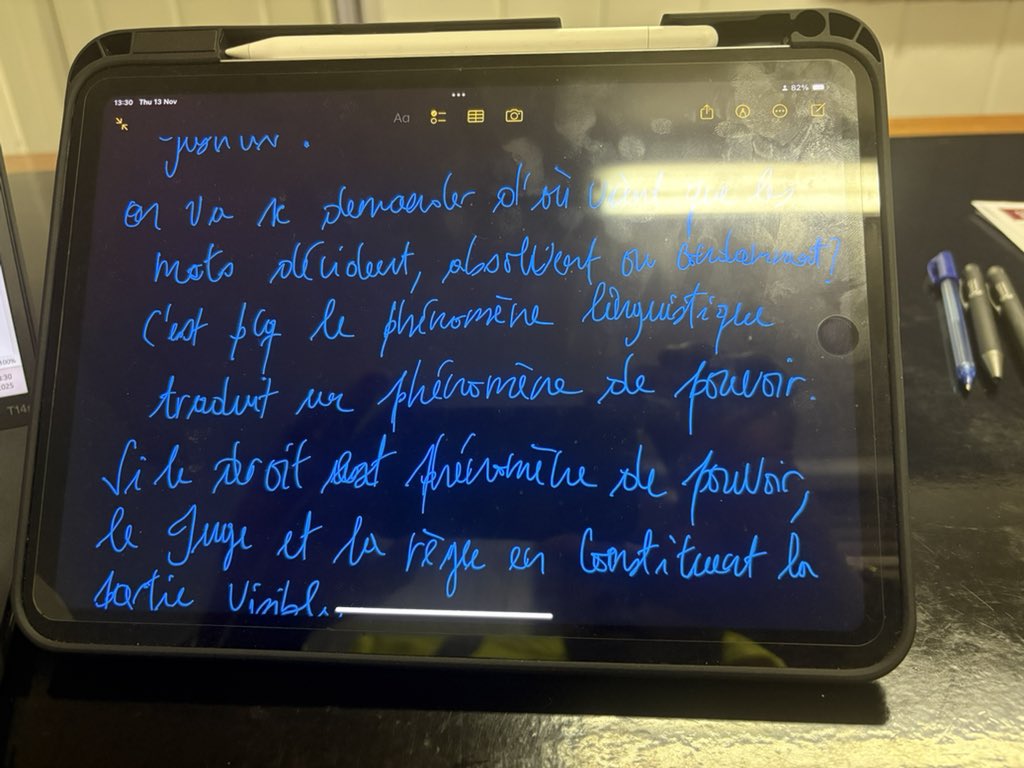 13:30 Thu 13 Nov
82%
Aa
on va se demander d'où vient que les
mots décident, absolvent ou condamnent?
C'est pcq le phénomène linguistique
traduit un phénomène de pouvoir.
Si le droit est phénomène de pouvoir,
le Juge et la règle en constituent la
partie visible.
100%
T14s